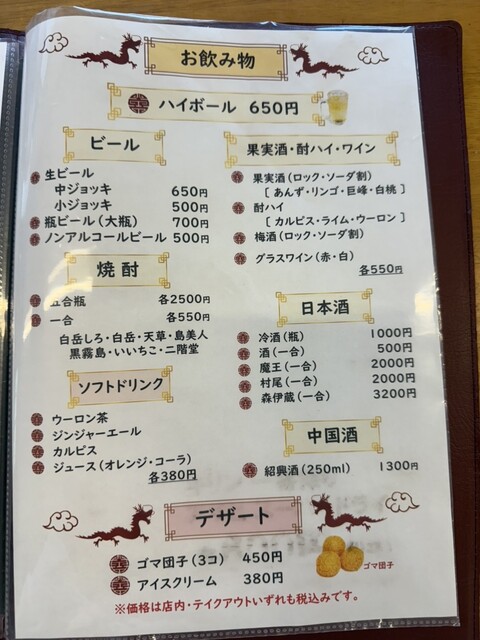 お飲み物
ハイボール 650円
ビール
生ビール
中ジョッキ 650円
小ジョッキ 500円
瓶ビール(大瓶) 700円
ノンアルコールビール 500円
焼酎
五合瓶 各2500円
一合 各550円
白岳しろ・白岳・天草・島美人
黒霧島・いいちこ・二階堂
ソフトドリンク
ウーロン茶
ジンジャーエール
カルピス
ジュース(オレンジ・コーラ)
各380円
果実酒・酎ハイ・ワイン
果実酒(ロック・ソーダ割)
[あんず・リンゴ・巨峰・白桃]
酎ハイ
[カルピス・ライム・ウーロン]
梅酒(ロック・ソーダ割)
グラスワイン(赤・白)
各550円
日本酒
冷酒(瓶) 1000円
酒(一合) 500円
魔王(一合) 2000円
村尾(一合) 2000円
森伊蔵(一合) 3200円
中国酒
紹興酒(250ml) 1300円
デザート
ゴマ団子(3コ) 450円
アイスクリーム 380円
ゴマ団子
※価格は店内・テイクアウトいずれも税込みです。